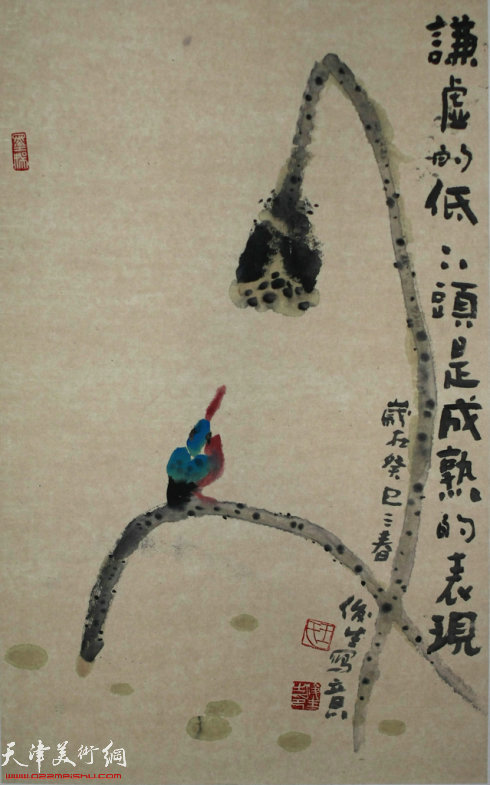 謙虚的低下頭是成熟的表現
歲在癸巳三春
生寫意
天津美術網
www.022meishu.com